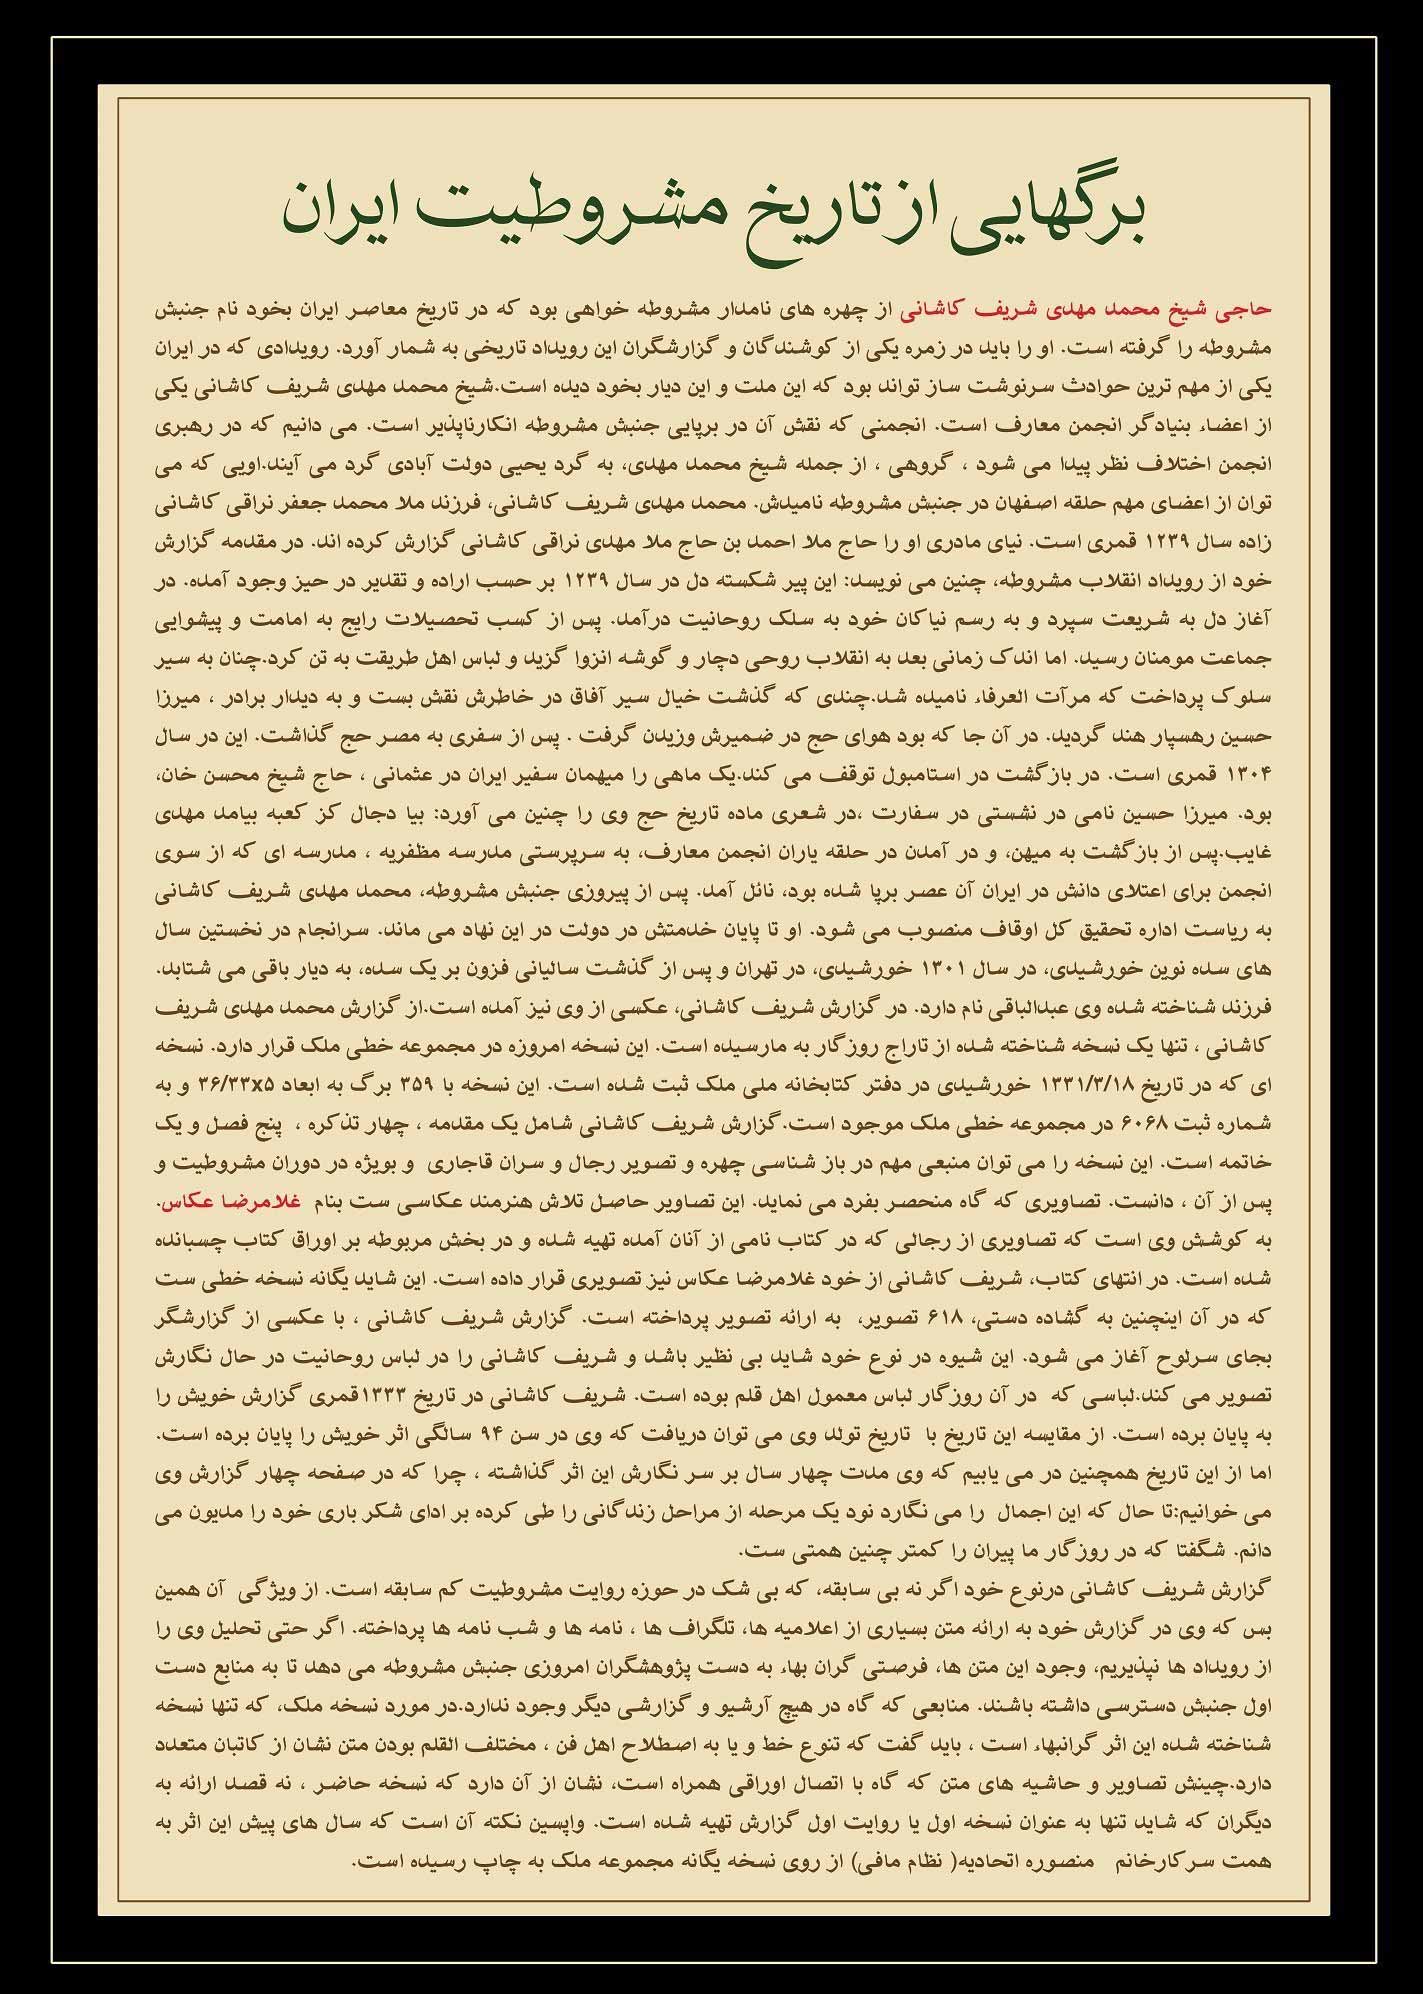 برگهایی از تاریخ مشروطیت ایران
حاجی شیخ محمد مهدی شریف کاشانی از چهره های نامدار مشروطه خواهی بود که در تاریخ معاصر ایران بخود نام جنبش
مشروطه را گرفته است. او را باید در زمره یکی از کوشندگان و گزارشگران این رویداد تاریخی به شمار آورد. رویدادی که در ایران
یکی از مهم ترین حوادث سرنوشت ساز تواند بود که این ملت و این دیار بخود دیده است.شیخ محمد مهدی شریف کاشانی یکی
از اعضاء بنیادگر انجمن معارف است. انجمنی که نقش آن در برپایی جنبش مشروطه انکارناپذیر است. می دانیم که در رهبری
انجمن اختلاف نظر پیدا می شود ، گروهی ، از جمله شیخ محمد مهدی، به گرد یحیی دولت آبادی گرد می آیند.اویی که می
توان از اعضای مهم حلقه اصفهان در جنبش مشروطه نامیدش. محمد مهدی شریف کاشانی، فرزند ملا محمد جعفر نراقی کاشانی
زاده سال ۱۲۳۹ قمری است. نیای مادری او را حاج ملا احمد بن حاج ملا مهدی نراقی کاشانی گزارش کرده اند. در مقدمه گزارش
خود از رویداد انقلاب مشروطه، چنین می نویسد: این پیر شکسته دل در سال ۱۲۳۹ بر حسب اراده و تقدیر در حیز وجود آمده. در
آغاز دل به شریعت سپرد و به رسم نیاکان خود به سلک روحانیت درآمد. پس از کسب تحصیلات رایج به امامت و پیشوایی
جماعت مومنان رسید. اما اندک زمانی بعد به انقلاب روحی دچار و گوشه انزوا گزید و لباس اهل طریقت به تن کرد.چنان به سیر
سلوک پرداخت که مرآت العرفاء نامیده شد.چندی که گذشت خیال سیر آفاق در خاطرش نقش بست و به دیدار برادر ، میرزا
حسین رهسپار هند گردید. در آن جا که بود هوای حج در ضمیرش وزیدن گرفت . پس از سفری به مصر حج گذاشت. این در سال
۱۳۰۴ قمری است. در بازگشت در استامبول توقف می کند.یک ماهی را میهمان سفیر ایران در عثمانی ، حاج شیخ محسن خان،
بود. میرزا حسین نامی در نشستی در سفارت ،در شعری ماده تاریخ حج وی را چنین می آورد: بیا دجال کز کعبه بیامد مهدی
غایب.پس از بازگشت به میهن، و در آمدن در حلقه یاران انجمن معارف، به سرپرستی مدرسه مظفریه ، مدرسه ای که از سوی
انجمن برای اعتلای دانش در ایران آن عصر برپا شده بود، نائل آمد. پس از پیروزی جنبش مشروطه، محمد مهدی شریف کاشانی
به ریاست اداره تحقیق کل اوقاف منصوب می شود. او تا پایان خدمتش در دولت در این نهاد می ماند. سرانجام در نخستین سال
های سده نوین خورشیدی، در سال ۱۳۰۱ خورشیدی، در تهران و پس از گذشت سالیانی فزون بر یک سده، به دیار باقی می شتابد.
فرزند شناخته شده وی عبدالباقی نام دارد. در گزارش شریف کاشانی، عکسی از وی نیز آمده است.از گزارش محمد مهدی شریف
کاشانی ، تنها یک نسخه شناخته شده از تاراج روزگار به مارسیده است. این نسخه امروزه در مجموعه خطی ملک قرار دارد. نسخه
ای که در تاریخ ۱۳۳۱/۳/۱۸ خورشیدی در دفتر کتابخانه ملی ملک ثبت شده است. این نسخه با ۳۵۹ برگ به ابعاد ۳۶/۳۳x۵ و به
شماره ثبت ۶۰۶۸ در مجموعه خطی ملک موجود است.گزارش شریف کاشانی شامل یک مقدمه ، چهار تذکره ، پنج فصل و یک
خاتمه است. این نسخه را می توان منبعی مهم در باز شناسی چهره و تصویر رجال و سران قاجاری و بویژه در دوران مشروطیت و
پس از آن ، دانست. تصاویری که گاه منحصر بفرد می نماید. این تصاویر حاصل تلاش هنرمند عکاسی ست بنام غلامرضا عکاس.
به کوشش وی است که تصاویری از رجالی که در کتاب نامی از آنان آمده تهیه شده و در بخش مربوطه بر اوراق کتاب چسبانده
شده است. در انتهای کتاب، شریف کاشانی از خود غلامرضا عکاس نیز تصویری قرار داده است. این شاید یگانه نسخه خطی ست
که در آن اینچنین به گشاده دستی، ۶۱۸ تصویر، به ارائه تصویر پرداخته است. گزارش شریف کاشانی ، با عکسی از گزارشگر
بجای سرلوح آغاز می شود. این شیوه در نوع خود شاید بی نظیر باشد و شریف کاشانی را در لباس روحانیت در حال نگارش
تصویر می کند.لباسی که در آن روزگار لباس معمول اهل قلم بوده است. شریف کاشانی در تاریخ ۱۳۳۳قمری گزارش خویش را
به پایان برده است. از مقایسه این تاریخ با تاریخ تولد وی می توان دریافت که وی در سن ۹۴ سالگی اثر خویش را پایان برده است.
اما از این تاریخ همچنین در می یابیم که وی مدت چهار سال بر سر نگارش این اثر گذاشته ، چرا که در صفحه چهار گزارش وی
می خوانیم:تا حال که این اجمال را می نگارد نود یک مرحله از مراحل زندگانی را طی کرده بر ادای شکر باری خود را مدیون می
دانم. شگفتا که در روزگار ما پیران را کمتر چنین همتی ست.
گزارش شریف کاشانی درنوع خود اگر نه بی سابقه، که بی شک در حوزه روایت مشروطیت کم سابقه است. از ویژگی آن همین
بس که وی در گزارش خود به ارائه متن بسیاری از اعلامیه ها، تلگراف ها ، نامه ها و شب نامه ها پرداخته. اگر حتی تحلیل وی را
از رویداد ها نپذیریم، وجود این متن ها، فرصتی گران بهاء به دست پژوهشگران امروزی جنبش مشروطه می دهد تا به منابع دست
اول جنبش دسترسی داشته باشند. منابعی که گاه در هیچ آرشیو و گزارشی دیگر وجود ندارد.در مورد نسخه ملک، که تنها نسخه
شناخته شده این اثر گرانبهاء است ، باید گفت که تنوع خط و یا به اصطلاح اهل فن ، مختلف القلم بودن متن نشان از کاتبان متعدد
دارد.چینش تصاویر و حاشیه های متن که گاه با اتصال اوراقی همراه است، نشان از آن دارد که نسخه حاضر ، نه قصد ارائه به
دیگران که شاید تنها به عنوان نسخه اول یا روایت اول گزارش تهیه شده است. واپسین نکته آن است که سال های پیش این اثر به
همت سرکارخانم منصوره اتحادیه( نظام مافی) از روی نسخه یگانه مجموعه ملک به چاپ رسیده است.